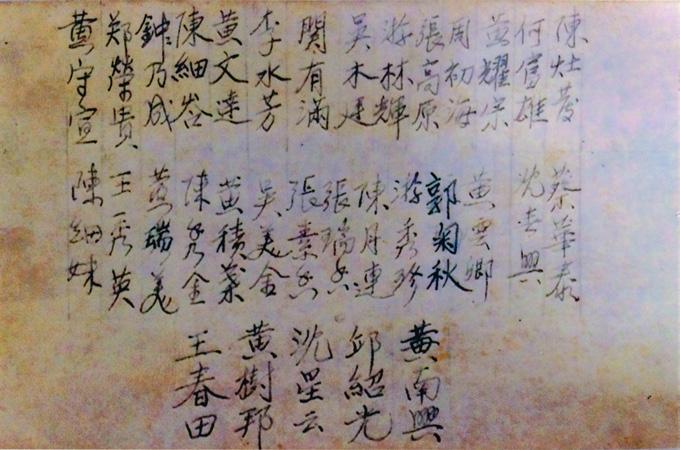 陳灶發
何富雄
黃耀宗
周初海
張高原
游林輝
吳木
有滿
李水芳
黃文達
陳細谷
鍾乃成
鄭榮貴
黃守宣
蔡華泰
沈春興
黃雲卿
郭菊秋
游秀珍
陳月連
張瑞香
張素香
吳美金
黃積葉
陳秀金
黃瑞美
王秀英
陳細妹
黃南興
邱紹光
沈星云
黃樹邦
王春田